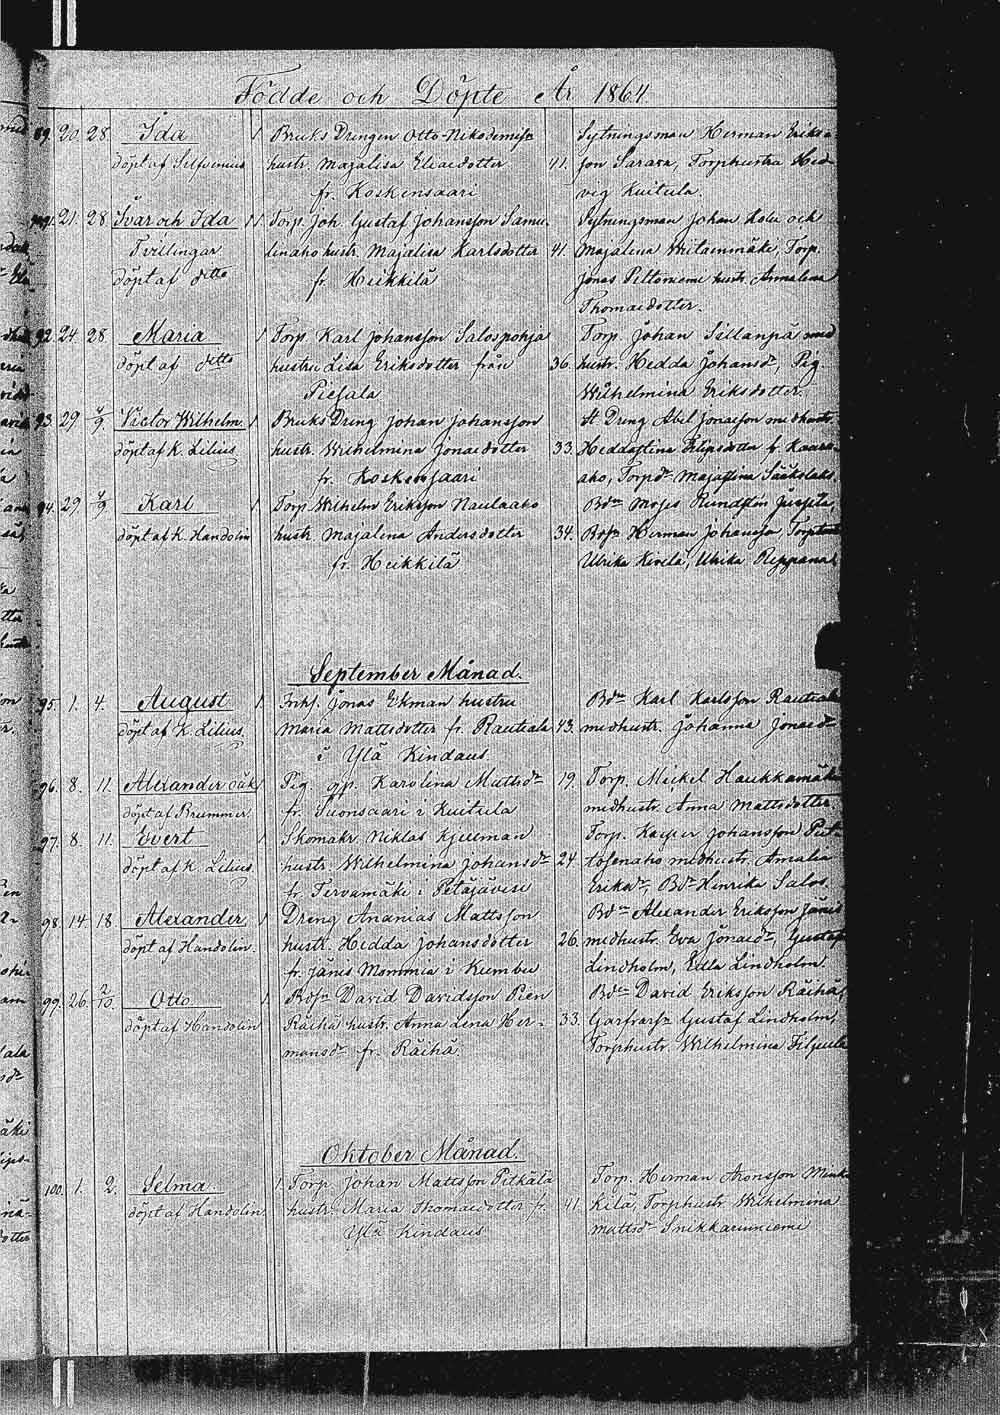 Födde och Döpte År 1864.
89. 20. 28. Ida 1 Bruks Drengen Otto Nikodemiss. Sytningsman Herman Eriks-
döpt af Selfvenius hustr. Majalisa Eliaedotter 41. son Sarasa, Torphustra Hed-
fr. Koskensaari vig Kuitula.
21. 28. Ivar och Ida 1 1 Torp. Joh. Gustaf Johansson Samu- Sytningsman Johan Kolu och
Tvillingar linaho hustr. Majalisa Karlsdotter 41. Majalena Witaenmäki, Torp.
döpt af ditto fr. Heikkilä Jonas Peltoniemi hustr. Annalena
Thomaedotter.
92. 24. 28. Maria 1 Torp. Karl Johansson Salospohja Torp. Johan Sillanpä med
döpt af ditto hustru Lisa Eriksdotter från 36. hustr. Hedda Johansdr, Pig.
Piesala Wilhelmina Eriksdotter.
93. 29. 4/9 Victor Wilhelm 1 Bruks Dreng Johan Johansson St. Dreng Abel Jonasson med hustr.
döpt af K. Lilius. hustr. Wilhelmina Jonaedotter 33. Heddastina Filipsdotter fr.
fr. Koskensaari aho, Torpdr Majastina
94. 29. 4/9 Karl 1 Torp. Wilhelm Eriksson Naulaaho Bdn Moses
döpt af K. Handolin hustr. Majalena Andersdotter 34. Herman Johansson
fr. Heikkilä Ulrika Kivelä, Ulrika
September Månad.
95. 1. 4. August 1. Inhs. Jonas Ekman hustru Bdn Karl Karlsson Rautiala
döpt af K. Lilius. Maria Mattsdotter fr. Rautiala 43. med hustr. Johanna Jonaedr
i Ylä Kindaus.
96. 8. 11. Alexander oäk. 1 Pig. ogp. Karolina Mattsdr 19. Torp. Mickel Haukkamäki
döpt af Brummer. fr. Suonsaari i Kuitula med hustr. Anna Mattsdotter
97. 8. 11. Evert 1 Skomakr. Niklas Kjellman Torp. Johansson
döpt af K. Lilius. hustr. Wilhelmina Johansdr 24. med hustr. Amalia
fr. Tervamäki i Petäjävesi Eriksdr, Bdr Henrika Salos.
98. 14. 18. Alexander. 1 Dreng Ananias Mattsson Bdn Alexander Eriksson Jänis
döpt af Handolin. hustr. Hedda Johansdotter 26. med hustr. Eva Jonaedr, Gustaf
fr. Jänis Mommia i Kumbu Lindholm, Edla Lindholm.
99. 26. 2/10. Otto 1 Bdsn David Davidsson Pien Bdn David Eriksson Räihä,
döpt af Handolin Räihä hustr. Anna Lena Her- 33. Gustaf Lindholm,
mansdr fr. Räihä. Torphustr. Wilhelmina
Oktober Månad.
100. 1. 2. Selma. 1. Torp. Johan Mattsson Pitkälä Torp. Herman Aronsson
döpt af Handolin. hustr. Maria Thomaedotter fr. 41. kilä, Torphustr. Wilhelmina
Ylä Kindaus Mattsdr Snikkarinniemi